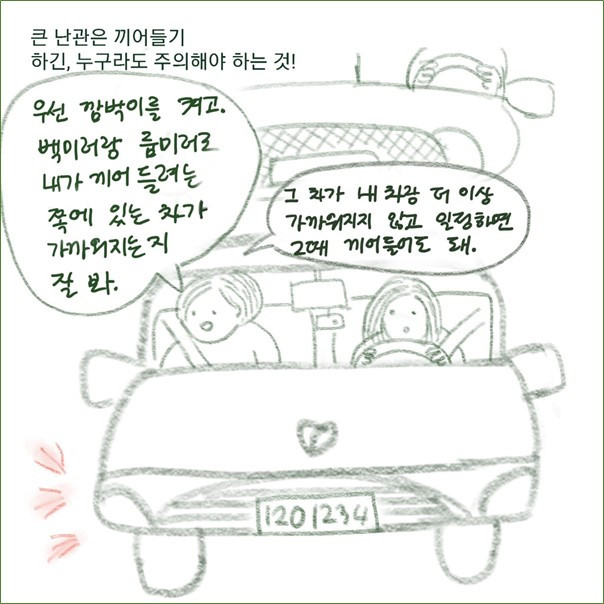 큰 난관은 끼어들기
하긴, 누구라도 주의해야 하는 것!
우선 깜박이를 켜고.
백미러랑 룸미러로
내가 끼어 들려는
쪽에 있는 차가
가까워지는지
잘 봐.
그 차가 내 차랑 더 이상
가까워지지 않고 일정하면
그때 끼어들어도 돼.
1201234